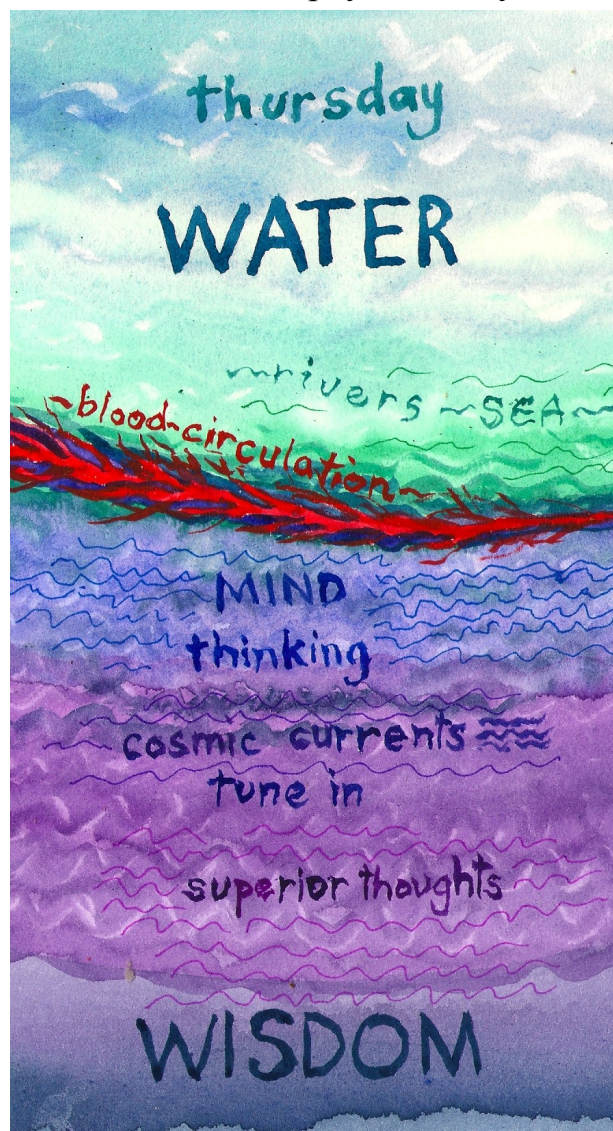 thursday
WATER
~rivers ~SEA~
~blood-circulation~
MIND
thinking
cosmic currents
tune in
superior thoughts
WISDOM